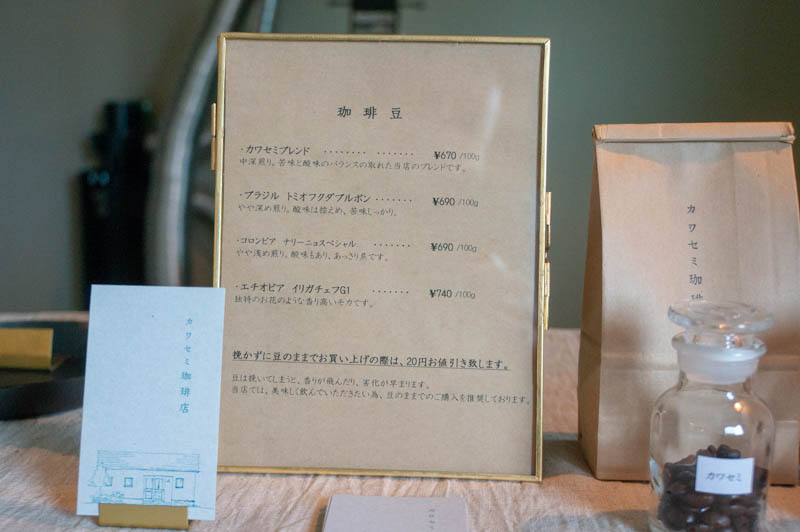 珈琲豆
・カワセミブレンド ········ ······· ¥670 /100g
中深煎り。苦味と酸味のバランスの取れた当店のブレンドです。
・ブラジル トミオフクダブルボン ······· ¥690 /100g
やや深め煎り。酸味は控えめ、苦味しっかり。
・コロンビア ナリーニョスペシャル ······· ¥690 /100g
やや浅め煎り。酸味もあり、あっさり系です。
・エチオピア イリガチェフG1 ······· ¥740 /100g
独特のお花のような香り高いモカです。
挽かずに豆のままでお買い上げの際は、20円お値引き致します。
豆は挽いてしまうと、香りが飛んだり、劣化が早まります。
当店では、美味しく飲んでいただきたい為、豆のままでのご購入を推奨しております。
カワセミ珈琲店
カワセミ珈琲
カワセミ